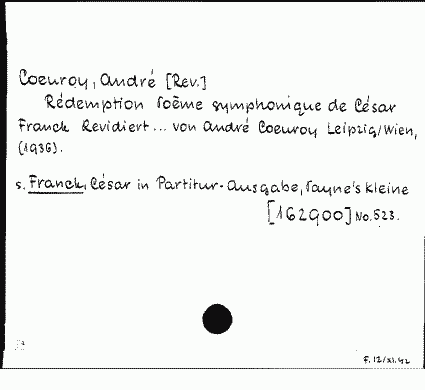 Coeuroy, André [Rev.]
Rédemption Poème symphonique de César
Franck Revidiert... von André Coeuroy Leipzig/Wien,
(1936).
s. Franck, César in Partitur-Ausgabe, Payne's kleine
[162900] No. 523.
F. 12/XI.42